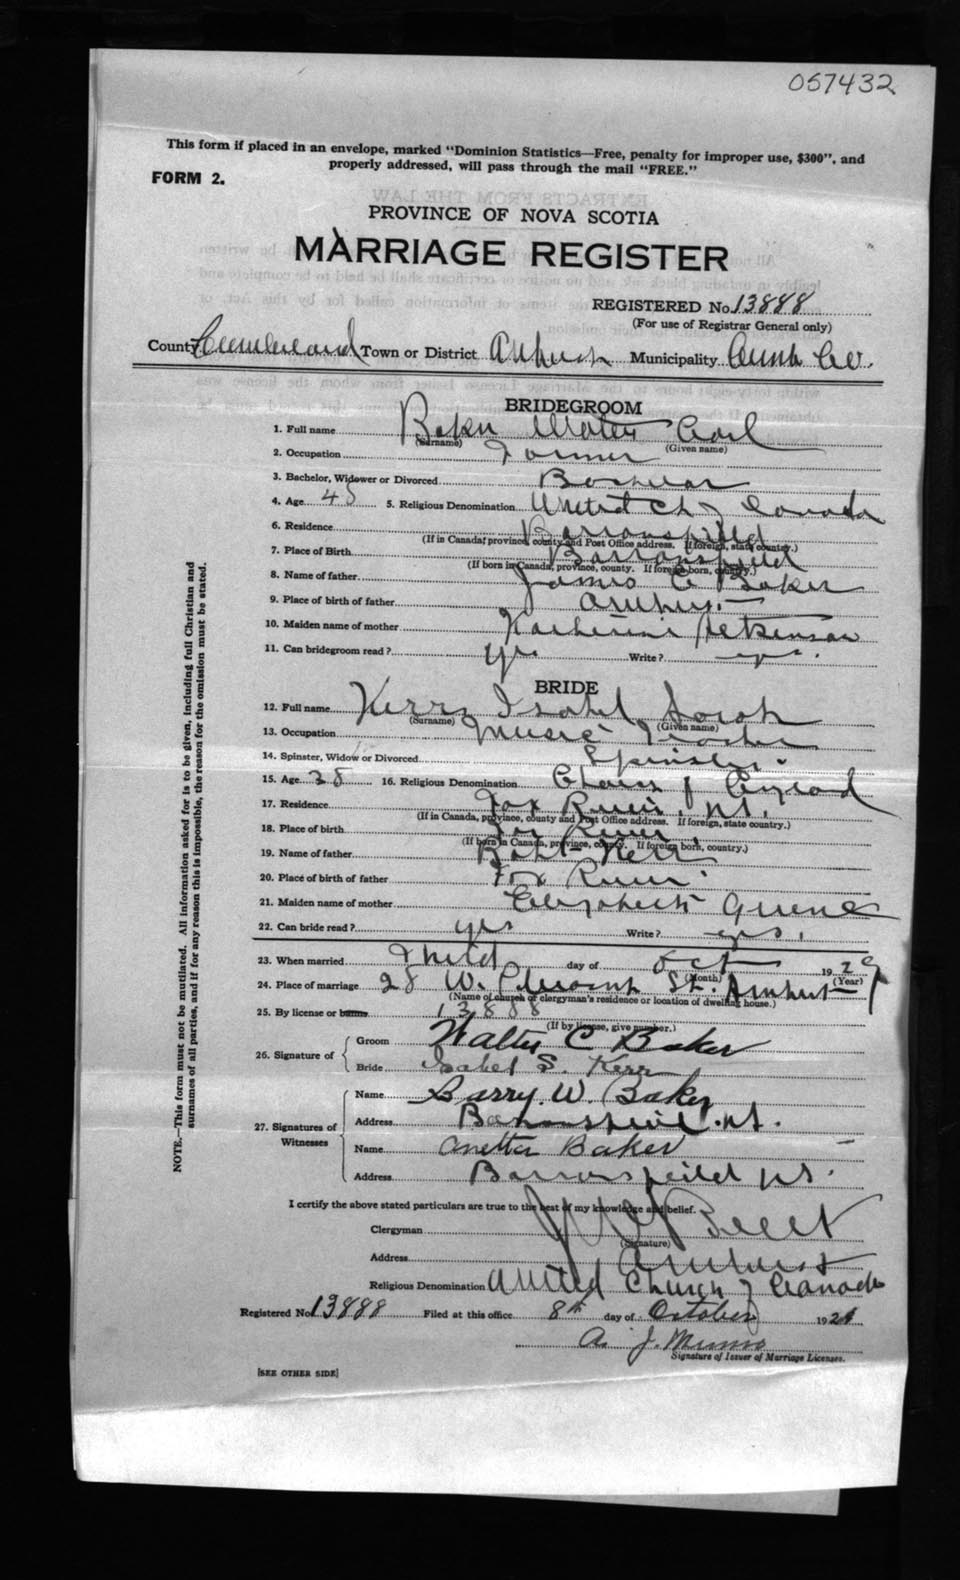 057432
This form if placed in an envelope, marked "Dominion Statistics—Free, penalty for improper use, $300", and
properly addressed, will pass through the mail "FREE."
FORM 2.
PROVINCE OF NOVA SCOTIA
MARRIAGE REGISTER
REGISTERED No. 13888
(For use of Registrar General only)
County Cumberland Town or District Amherst Municipality Cumb Co.
BRIDEGROOM
1. Full name Baker Walter Carl
(Surname) (Given name)
2. Occupation Farmer
3. Bachelor, Widower or Divorced Bachelor
4. Age 45 5. Religious Denomination United Ch of Canada
6. Residence Barronsfield
(If in Canada, province, county and Post Office address. If foreign, state country.)
7. Place of Birth Barronsfield
(If born in Canada, province, county. If foreign born, country.)
8. Name of father James C Baker
9. Place of birth of father Amherst
10. Maiden name of mother Katherine Atkinson
11. Can bridegroom read? yes Write? yes.
BRIDE
12. Full name Kerr Isabel Sarah
(Surname) (Given name)
13. Occupation Music Teacher
14. Spinster, Widow or Divorced Spinster.
15. Age 38 16. Religious Denomination Church of England
17. Residence Fox River. N.S.
(If in Canada, province, county and Post Office address. If foreign, state country.)
18. Place of birth Fox River
(If born in Canada, province, county. If foreign born, country.)
19. Name of father Robt Kerr
20. Place of birth of father Fox River.
21. Maiden name of mother Elizabeth
22. Can bride read? yes Write? yes.
23. When married Third day of Oct 1929
(Month) (Year)
24. Place of marriage 28 W. St. Amherst
(Name of church or clergyman's residence or location of dwelling house.)
25. By license or banns 13888
(If by license, give number.)
26. Signature of Groom Walter C Baker
Bride Isabel S. Kerr
27. Signatures of Witnesses Name W. Baker
Address Barronsfield. N.S.
Name Anetta Baker
Address Barronsfield N.S.
I certify the above stated particulars are true to the best of my knowledge and belief.
Clergyman
(Signature)
Address Amherst
Religious Denomination United Church of Canada
Registered No. 13888 Filed at this office 8th day of October 192
A. J. Munro
Signature of Issuer of Marriage Licenses.
[SEE OTHER SIDE]
NOTE.—This form must not be mutilated. All information asked for is to be given, including full Christian and
surnames of all parties, and if for any reason this is impossible, the reason for the omission must be stated.